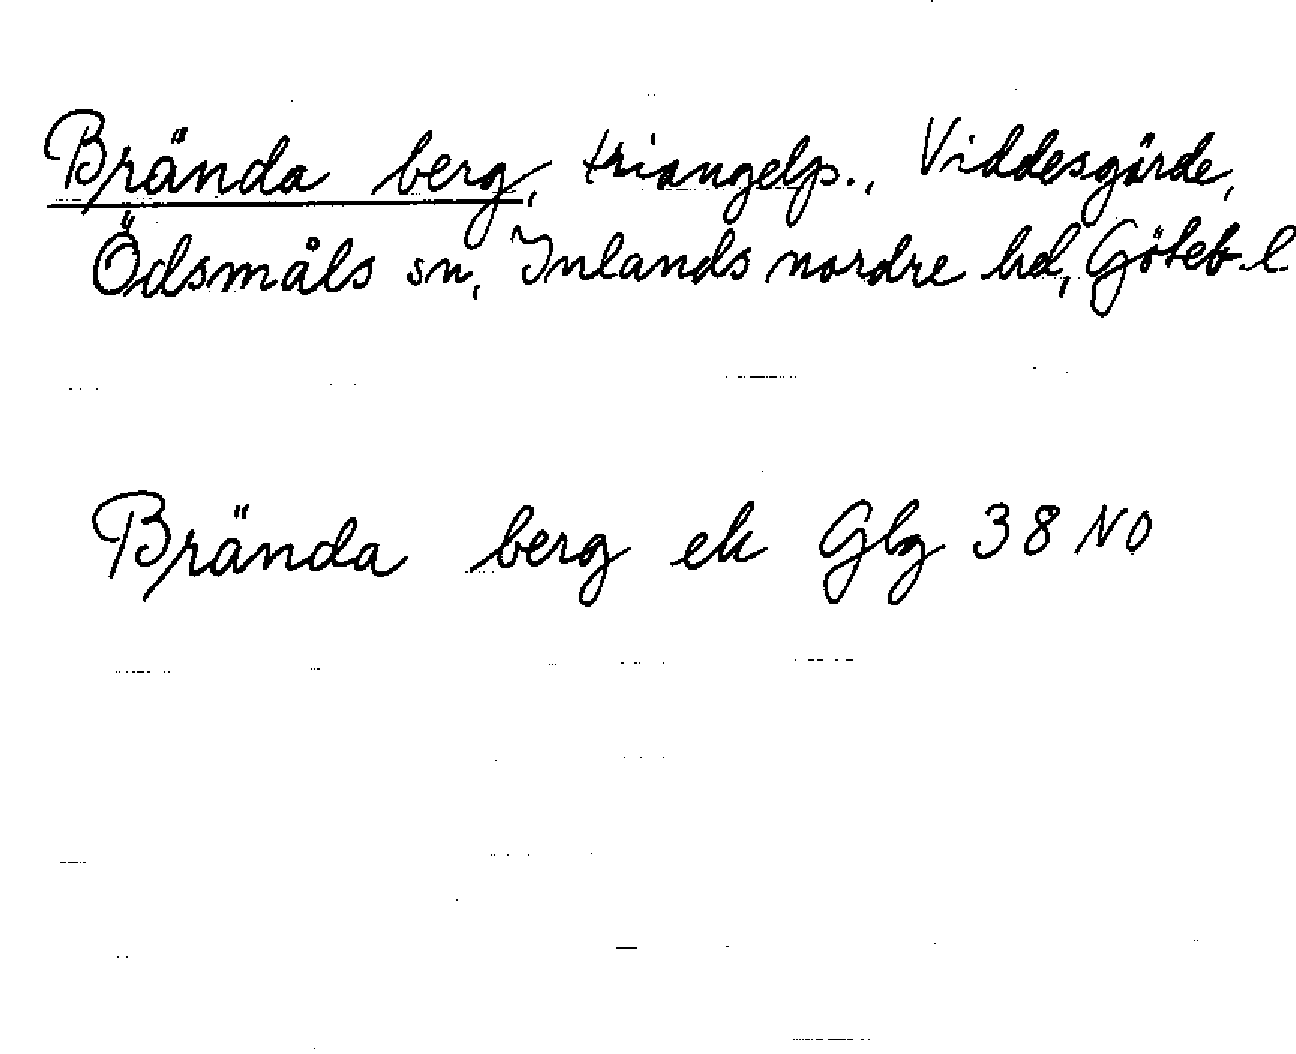 Brända berg, triangelp., Viddesgärde,
Ödsmåls sn, Inlands nordre hd, Göteb. l
Brända berg ek Gbg 38 NO